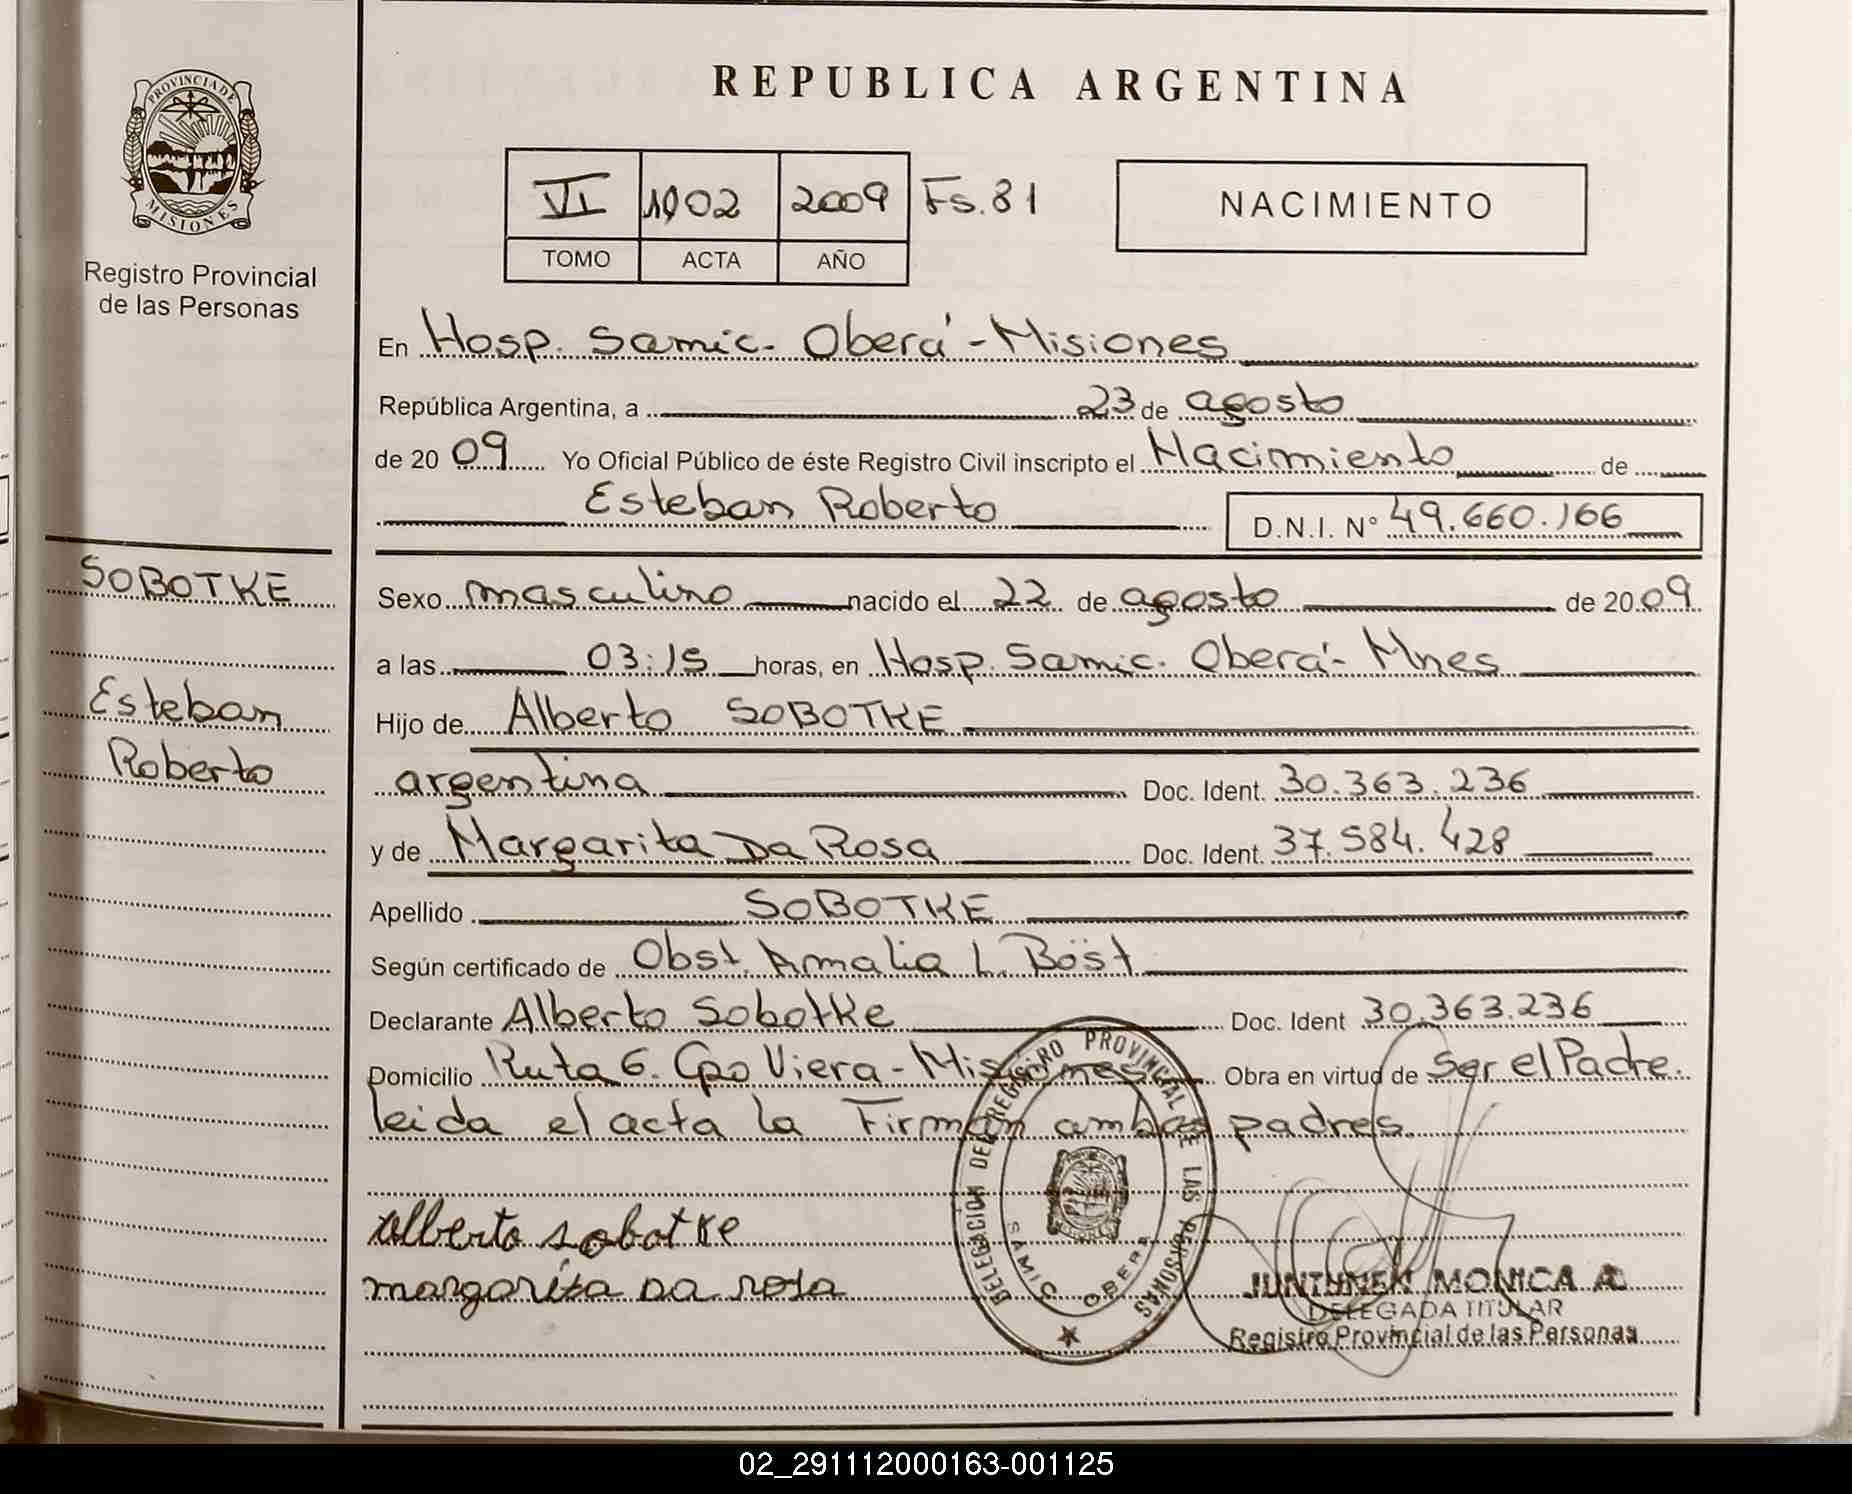 REPUBLICA ARGENTINA
PROVINCIA DE
MISIONES
Registro Provincial
de las Personas
VI 1002 2009 Fs. 81
TOMO ACTA AÑO
NACIMIENTO
En Hosp. Samic. Oberá - Misiones
República Argentina, a 23 de agosto
de 20 09 Yo Oficial Público de éste Registro Civil inscripto el Nacimiento de
Esteban Roberto D.N.I. N° 49.660.166
SOBOTKE
Esteban
Roberto
Sexo masculino nacido el 22 de agosto de 20 09
a las 03:15 horas, en Hosp. Samic. Oberá - Mnes
Hijo de Alberto SOBOTKE
argentina Doc. Ident. 30.363.236
y de Margarita Da Rosa Doc. Ident. 37.584.428
Apellido SOBOTKE
Según certificado de Obst. Amalia L. Böst
Declarante Alberto Sobotke Doc. Ident 30.363.236
Domicilio Ruta 6. Cpo Viera - Misiones Obra en virtud de Ser el Padre.
leida el acta la Firman ambos padres.
alberto sobotke
margarita Da rosa
DELEGACIÓN DEL REGISTRO PROVINCIAL DE LAS PERSONAS
SAMIC OBERA
MONICA A
DELEGADA TITULAR
Registro Provincial de las Personas
02_291112000163-001125